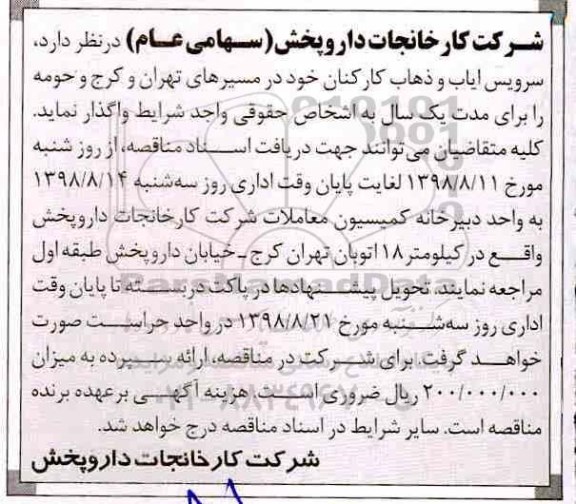 شرکت کارخانجات داروپخش (سهامی عام) در نظر دارد،
سرویس ایاب و ذهاب کارکنان خود در مسیرهای تهران و کرج و حومه
را برای مدت یک سال به اشخاص حقوقی واجد شرایط واگذار نماید.
کلیه متقاضیان می‌توانند جهت دریافت اسناد مناقصه، از روز شنبه
مورخ ۱۳۹۸/۸/۱۱ لغایت پایان وقت اداری روز سه‌شنبه ۱۳۹۸/۸/۱۴
به واحد دبیرخانه کمیسیون معاملات شرکت کارخانجات داروپخش
واقع در کیلومتر ۱۸ اتوبان تهران کرج ـ خیابان داروپخش طبقه اول
مراجعه نمایند. تحویل پیشنهادها در پاکت دربسته تا پایان وقت
اداری روز سه‌شنبه مورخ ۱۳۹۸/۸/۲۱ در واحد حراست صورت
خواهد گرفت برای شرکت در مناقصه، ارائه سپرده به میزان
۲۰۰/۰۰۰/۰۰۰ ریال ضروری است. هزینه آگهی برعهده برنده
مناقصه است. سایر شرایط در اسناد مناقصه درج خواهد شد.
شرکت کارخانجات داروپخش